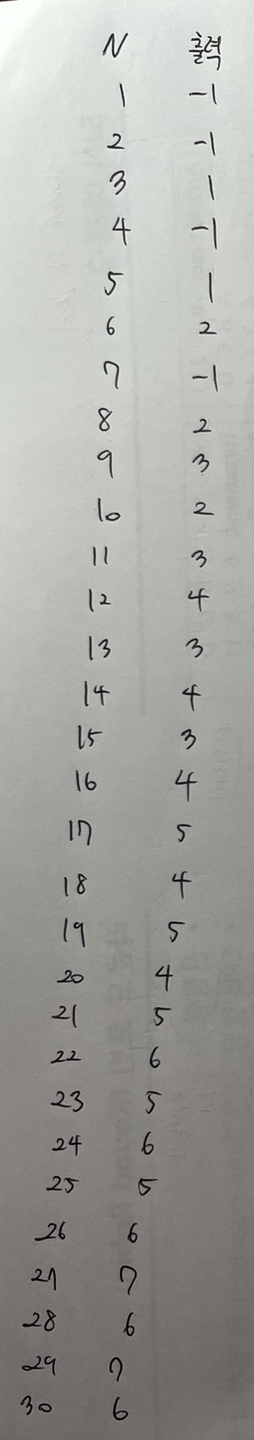 N 출력
1 -1
2 -1
3 1
4 -1
5 1
6 2
7 -1
8 2
9 3
10 2
11 3
12 4
13 3
14 4
15 3
16 4
17 5
18 4
19 5
20 4
21 5
22 6
23 5
24 6
25 5
26 6
27 7
28 6
29 7
30 6